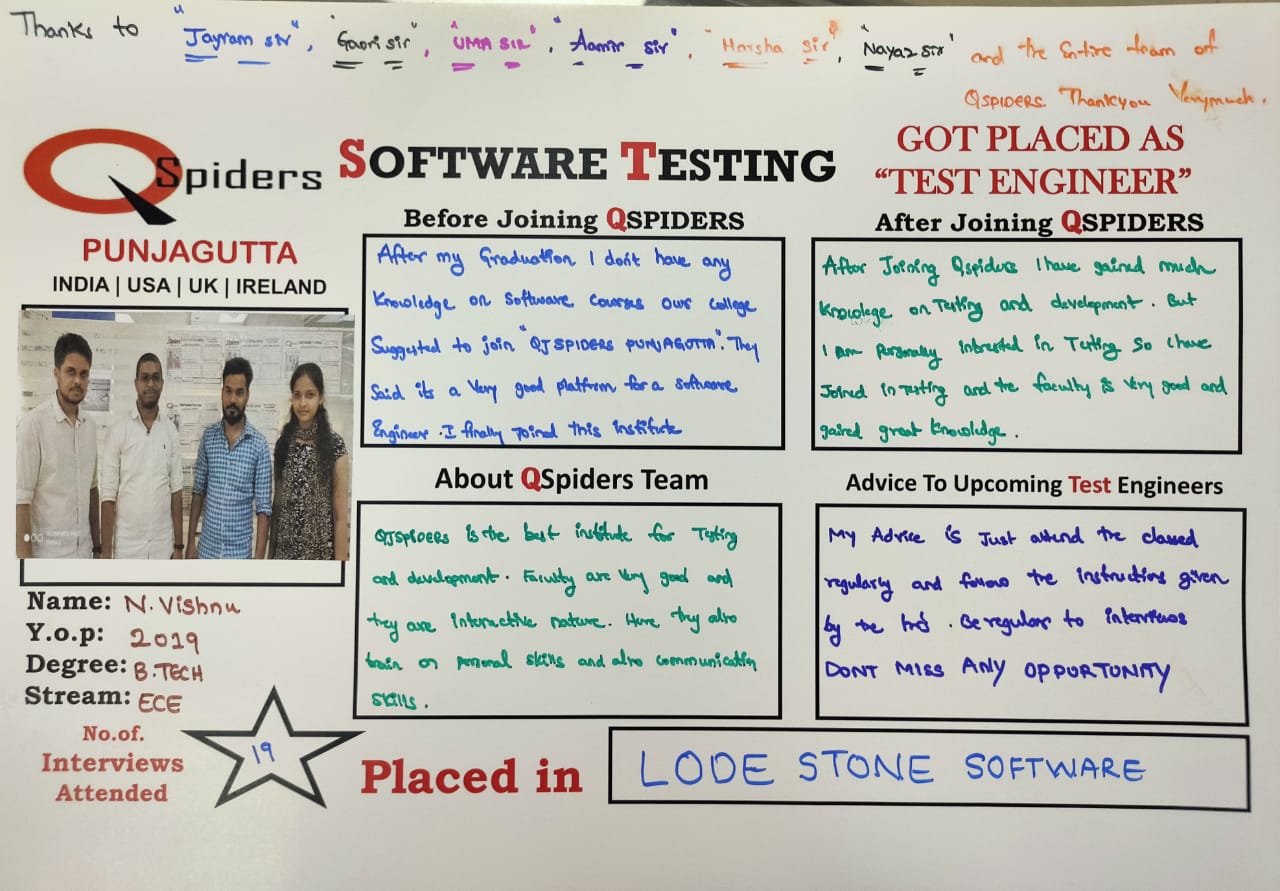 Thanks to "Jayram sir", "Gaori sir", "UMA SIR", "Aamir sir", "Harsha sir", "Nayaz sir" and the Entire team of
QSPIDERS. Thankyou Verymuch.
QSpiders
PUNJAGUTTA
INDIA | USA | UK | IRELAND
SOFTWARE TESTING
GOT PLACED AS
"TEST ENGINEER"
Before Joining QSPIDERS
After my Graduation I don't have any
Knowledge on Software Courses our College
Suggested to join "QJSPIDERS PUNJAGUTTA". They
Said its a Very good platform for a software
Engineer. I finally joined this institute
After Joining QSPIDERS
After Joining Qspiders I have gained much
Knowlege on Testing and development. But
I Am Personally Intrested in Testing So I have
Joined in Testing and the faculty is Very good and
gained great Knowledge.
About QSpiders Team
QJSPIDERS is the best institute for Testing
and development. Faculty are Very good and
they are Interactive nature. Here they also
train on personal skills and also communication
SKills.
Advice To Upcoming Test Engineers
My Advice is Just attend the classes
regularly and follow the instructions given
by the . Be regular to interviews
DONT MISS ANY OPPURTUNITY
Name: N. Vishnu
Y.o.p: 2019
Degree: B.TECH
Stream: ECE
No.of.
Interviews
Attended
19
Placed in LODE STONE SOFTWARE